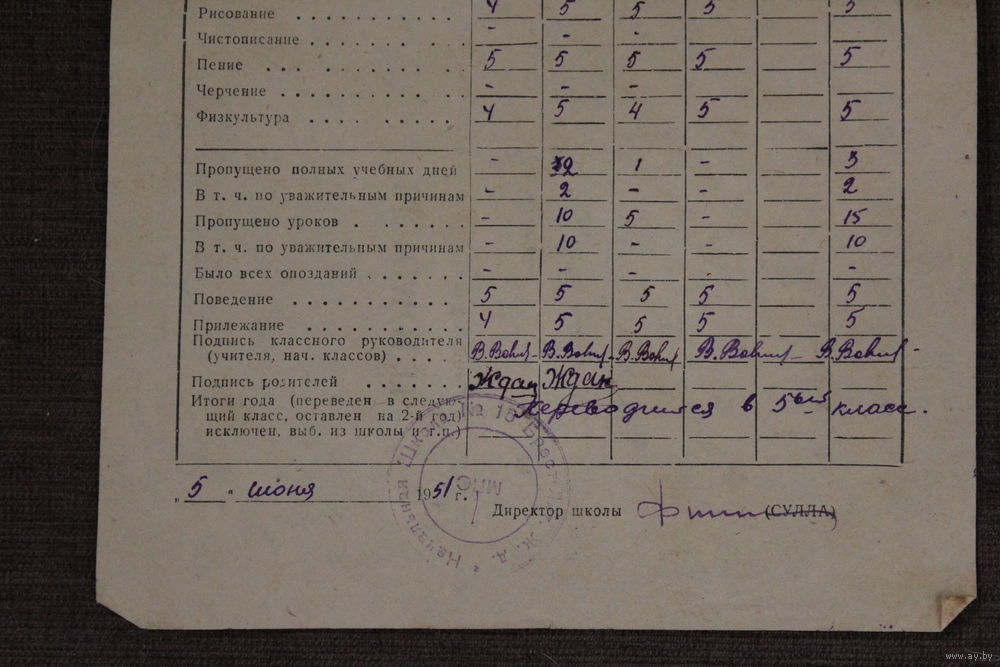 Рисование 4 5 5 5 5
Чистописание . . . . . . . . . . - - -
Пение . . . . . . . . . . 5 5 5 5 5
Черчение . . . . . . . . . . . - - -
Физкультура . . . . . . . . 4 5 4 5 5
Пропущено полных учебных дней - 2 1 - 3
В т. ч. по уважительным причинам - 2 - - 2
Пропущено уроков . . . . . . . - 10 5 - 15
В т. ч. по уважительным причинам - 10 - - 10
Было всех опозданий . . . . . . - - - - -
Поведение . . . . . . . . . . . 5 5 5 5 5
Прилежание . . . . . . . . . . 4 5 5 5 5
Подпись классного руководителя
(учителя, нач. классов) . . . .
Подпись родителей . . . . . . . Ждан Ждан
Итоги года (переведен в следую-
щий класс, оставлен на 2-й год)
исключен, выб. из школы и т.п.)
Переводится в 5ый класс.
„5" июня 1951 г.
Директор школы (СУЛЛА)
Начальная школа № 18 Брест-Лит. ж. д. *
МПС
www.ay.by